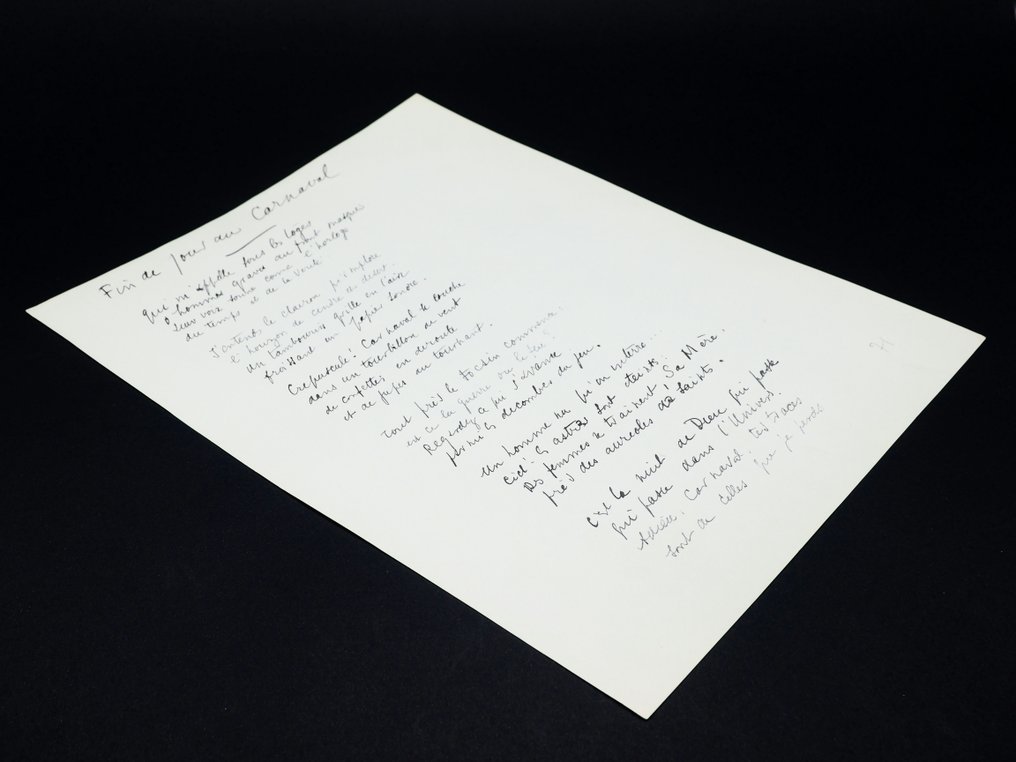 Fin de jour au Carnaval
Qui m'appelle sous les loges
O hommes graves au front masqué
Leur voix tourne comme l'horloge
du temps et de la voute
J'entends le clairon, j'implore
l'horizon de cendre et
un tambourin grille en l'air
froissant un papier sonore.
Crepuscule. Carnaval se couche
dans un tourbillon de vent
de confettis en deroute
et de jupes au tournant.
Tout près le tocsin commence:
est ce la guerre ou le feu?
Regardez a qui s'avance
parmi les decombres du jeu.
Un homme na qu'on enterre..
ciel! les astres sont eteints:
Des femmes trainent Sa Mère.
près des aureoles de Saints.
C'est la nuit de Dieu qui passe
qui passe dans l'Univers.
Adieu. Carnaval. tes traces
sont de celles que je perds